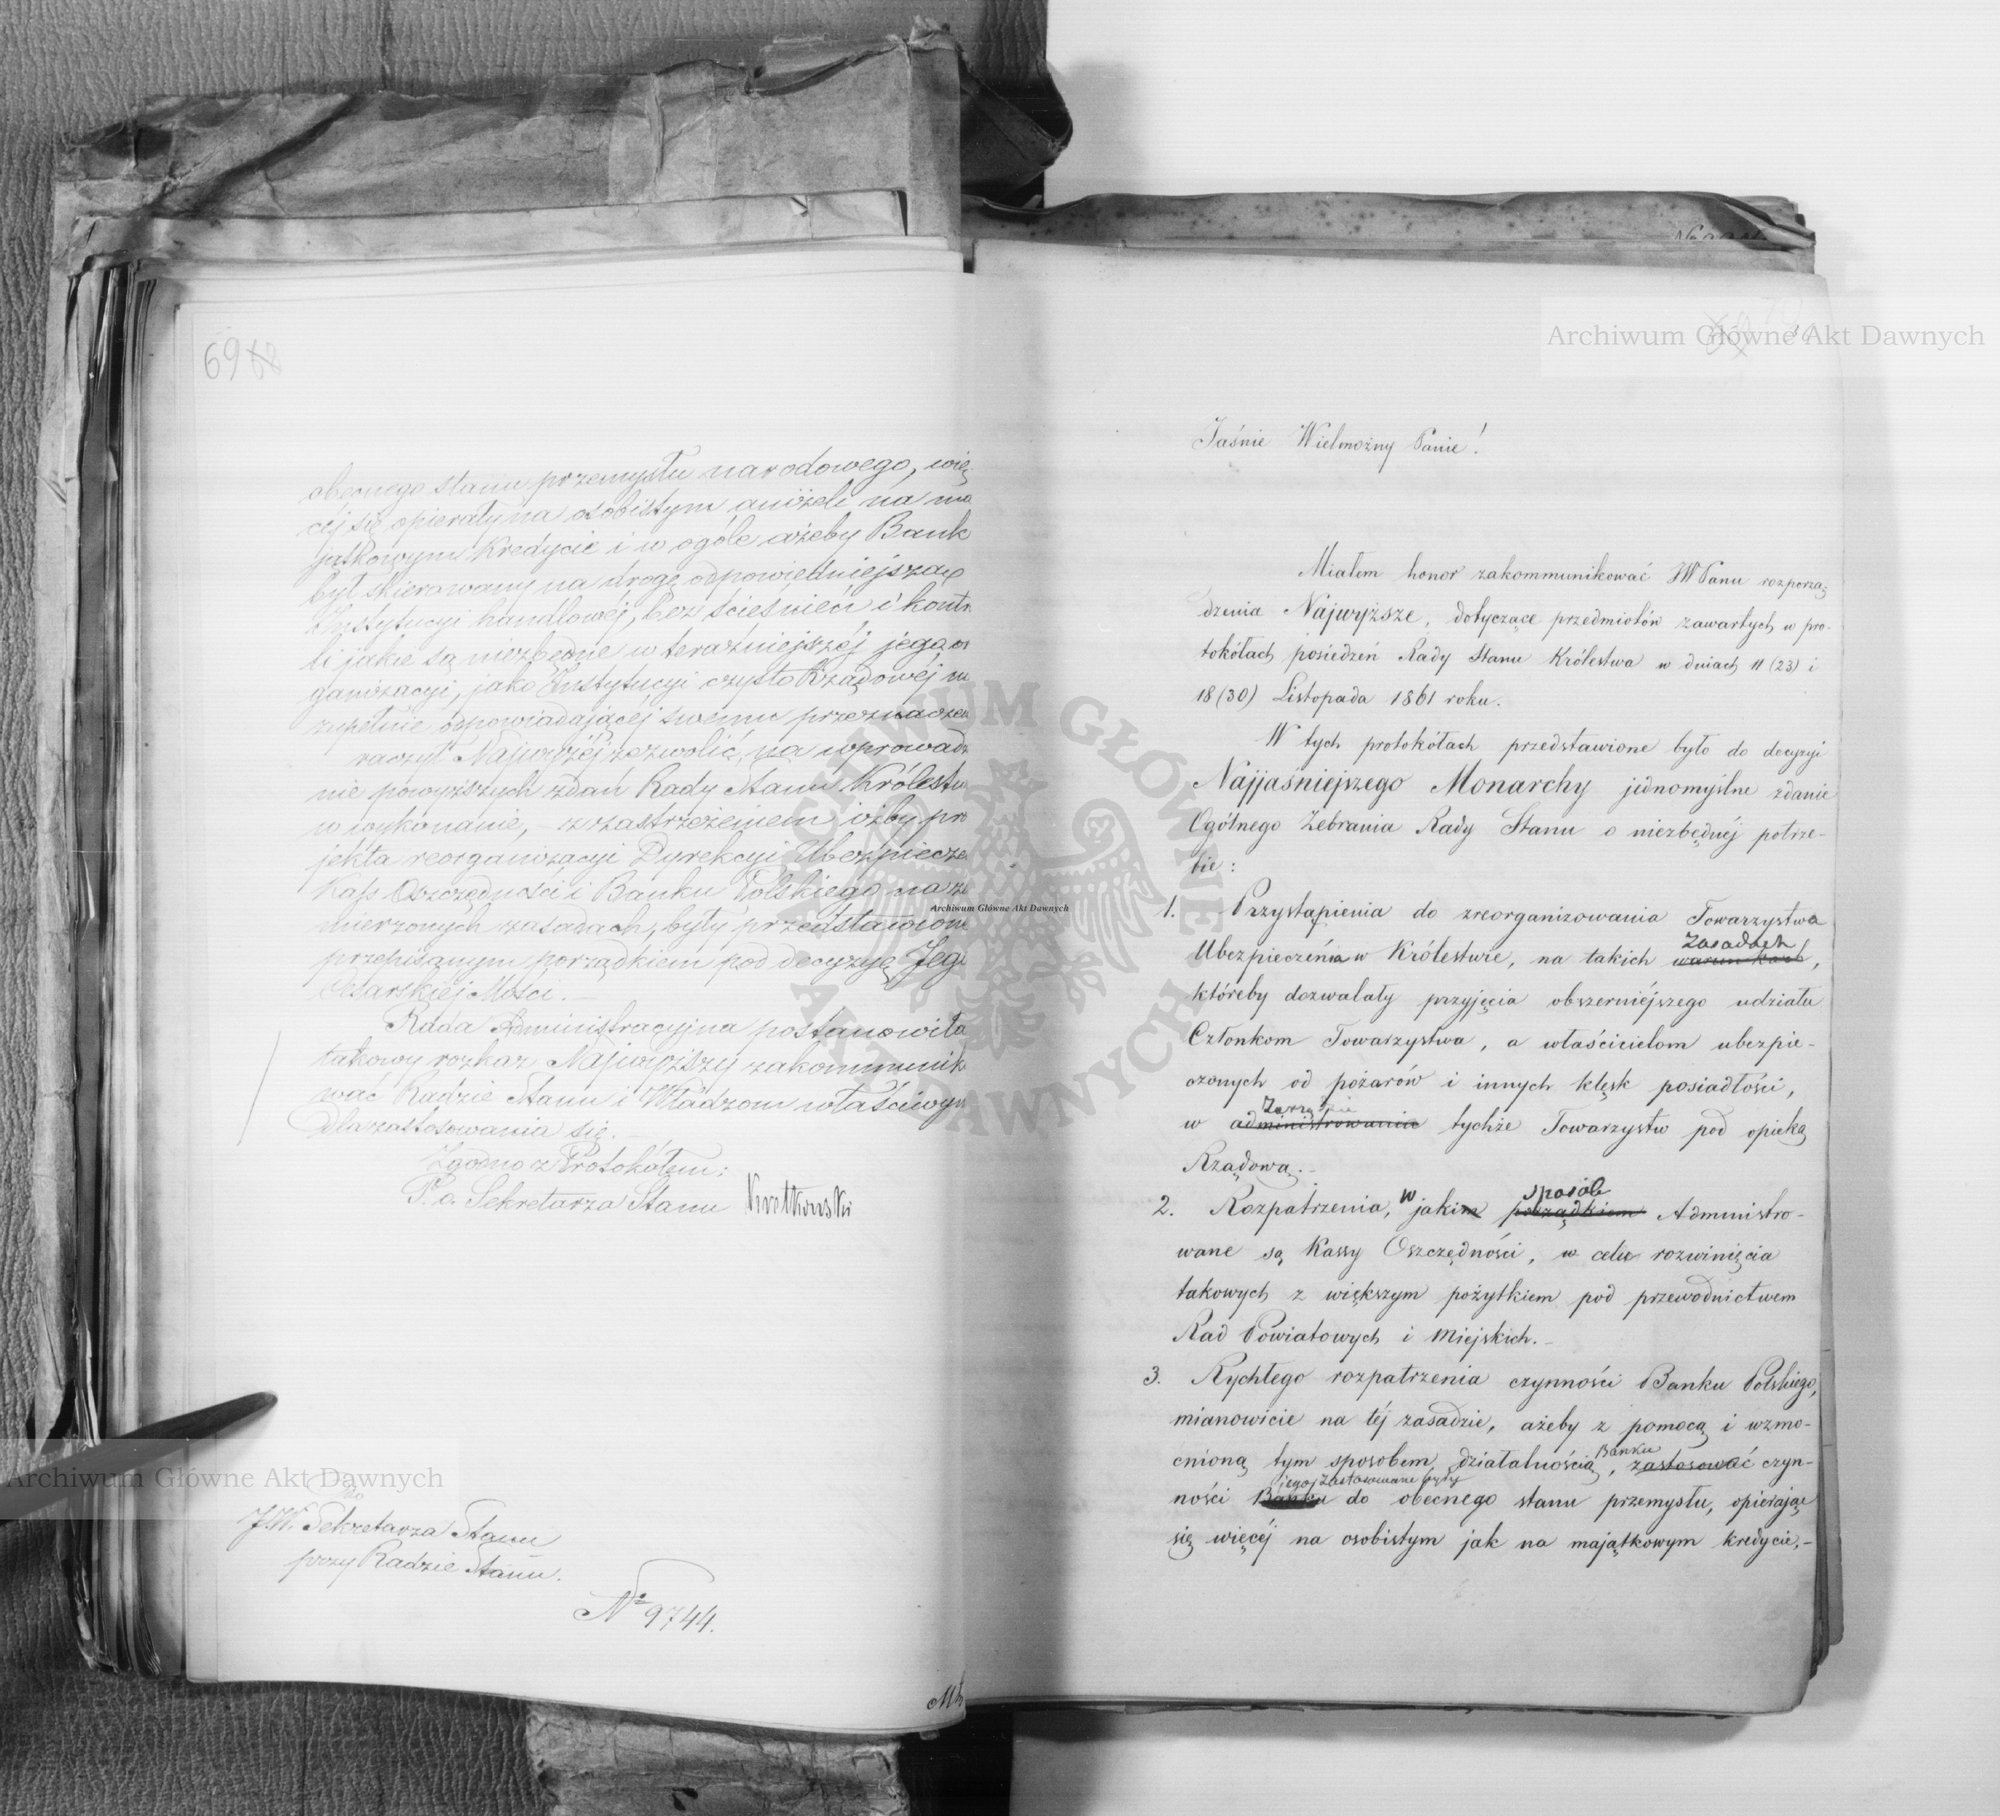 69 68
obecnego stanu przemysłu narodowego, wię
cej się opierały na osobistym aniżeli na ma
jątkowym Kredycie i w ogóle ażeby Bank
był skierowany na drogę odpowiedniejszą
Instytucyi handlowéj, bez ścieśnień i kontr
li jakie są niezbędne w teraźniejszéj jego or
ganizacyi, jako Instytucyi czysto Rządowéj n
zupełnie odpowiadającéj swemu przeznacze
raczył Najwyżéj zezwolić, na wprowadz
nie powyższych zdań Rady Stanu Królestw
w wykonanie, – z zastrzeżeniem iżby pro
jekta reorganizacyi Dyrekcyi Ubezpiecze
Kass Oszczędności i Banku Polskiego na za
mierzonych zasadach, były przedstawion
przepisanym porządkiem pod decyzyę Jego
Cesarskiej Mości. –
Rada Administracyjna postanowiła
takowy rozkaz Najwyższy zakommuniko
wać Radzie Stanu i Władzom właściwym
dla zastosowania się. –
Zgodno z Protokółem:
P. o. Sekretarza Stanu Kwitkowski
Do
JW. Sekretarza Stanu
przy Radzie Stanu.
Nº 9744.
Jaśnie Wielmożny Panie!
Miałem honor zakommunikować JW Panu rozporzą-
dzenia Najwyższe, dotyczące przedmiotów zawartych w pro-
tokółach posiedzeń Rady Stanu Królestwa w dniach 11 (23) i
18 (30) Listopada 1861 roku.
W tych protokółach przedstawione było do decyzyi
Najjaśniejszego Monarchy jednomyślne zdanie
Ogólnego Zebrania Rady Stanu o niezbędnéj potrze-
bie:
1. Przystąpienia do zreorganizowania Towarzystwa
zasadach
Ubezpieczenia w Królestwie, na takich warunkach,
któreby dozwalały przyjęcia obszerniejszego udziału
Członkom Towarzystwa, a właścicielom ubezpie-
czonych od pożarów i innych klęsk posiadłości,
Zarządzie
w administrowaniu tychże Towarzystw pod opieką
Rządową. –
w sposób
2. Rozpatrzenia, jakim porządkiem Administro-
wane są Kassy Oszczędności, w celu rozwinięcia
takowych z większym pożytkiem pod przewodnictwem
Rad Powiatowych i Miejskich. –
3. Rychłego rozpatrzenia czynności Banku Polskiego,
mianowicie na téj zasadzie, ażeby z pomocą i wzmo-
Banku
cnioną tym sposobem działalnością, zastosować czyn-
jego zastosowane były
ności Banku do obecnego stanu przemysłu, opierając
się więcéj na osobistym jak na majątkowym kredycie, –
Archiwum Główne Akt Dawnych
Archiwum Główne Akt Dawnych
Archiwum Główne Akt Dawnych
ARCHIWUM GŁÓWNE AKT DAWNYCH